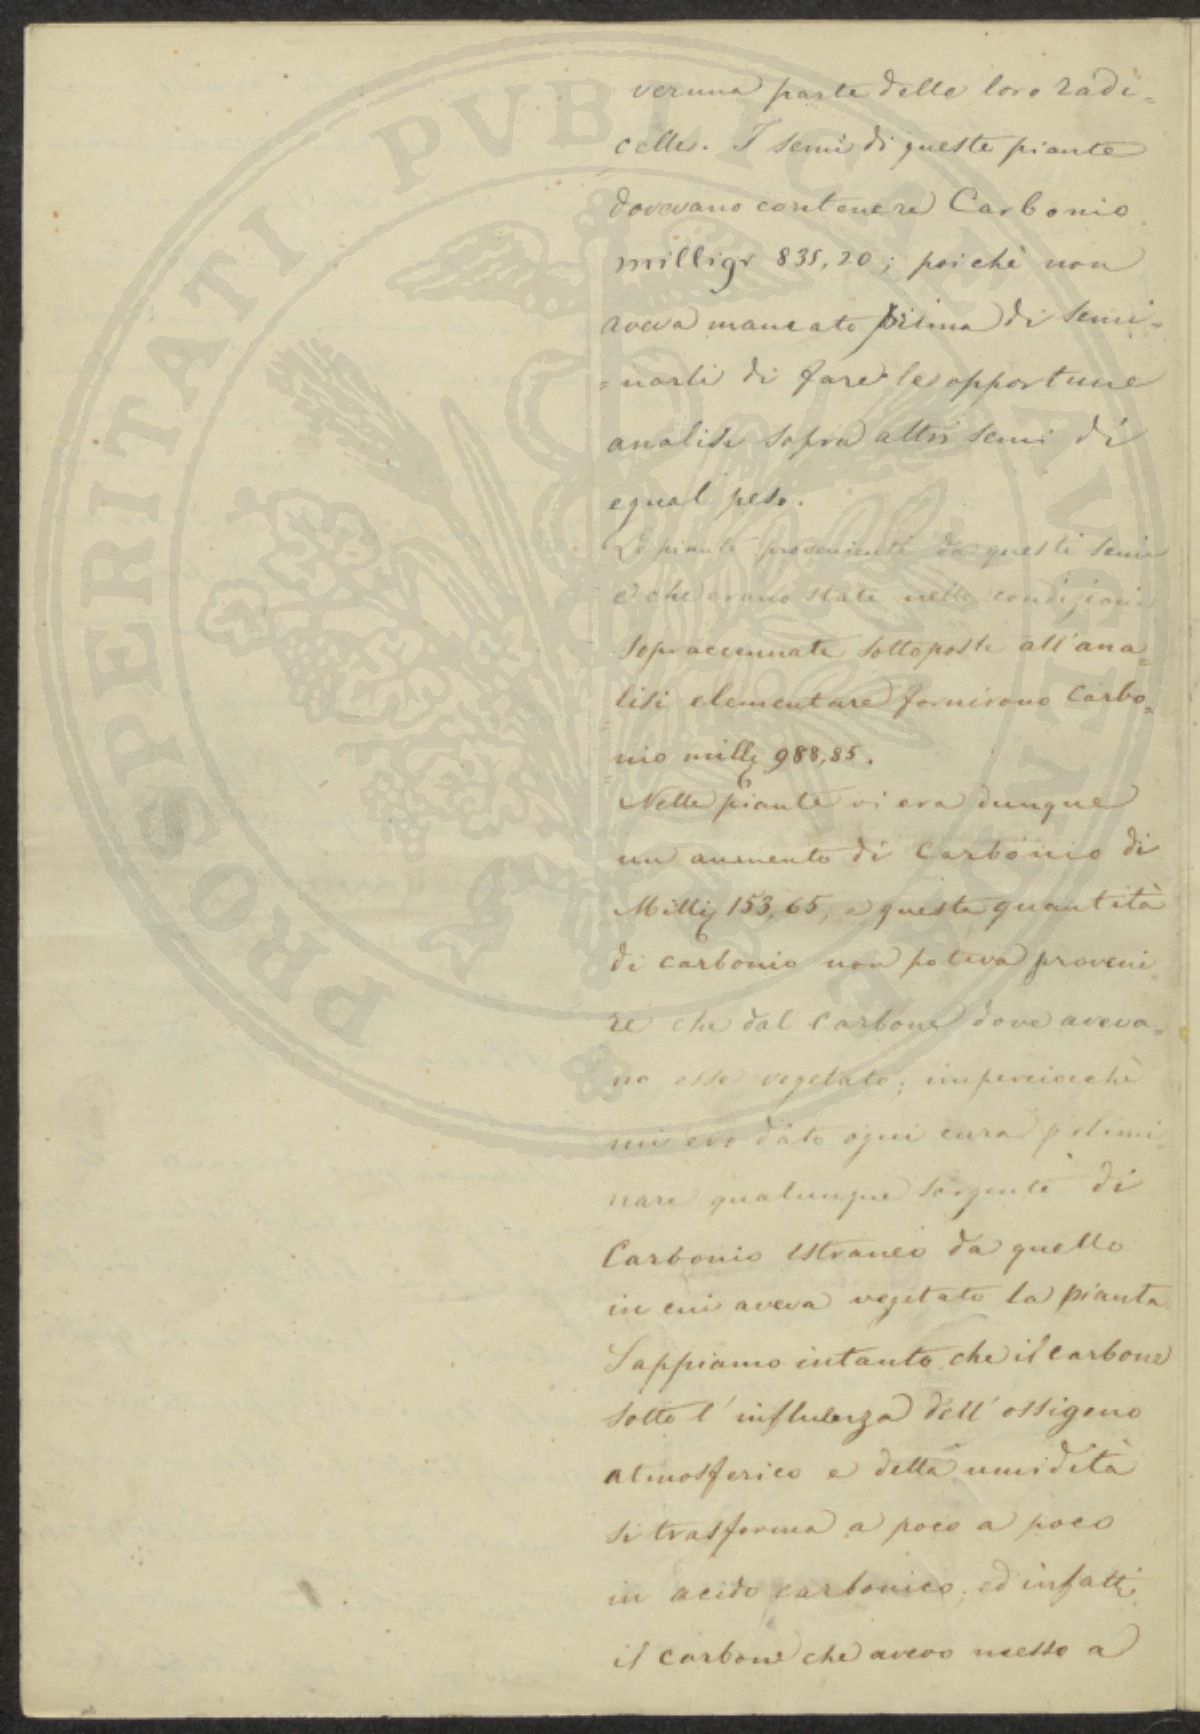 veruna parte delle loro radi=
celle. I semi di queste piante
dovevano contenere Carbonio
milligr 835,20; poichè non
aveva mancato prima di semi=
=narli di fare le opportune
analisi sopra altri semi di
egual peso.
Le piante provenienti da questi semi
e che erano state nelle condizioni
sopraccennate sottoposte all'ana=
lisi elementare fornirono Carbo=
=nio millg 988,85.
Nelle piante vi era dunque
un aumento di Carbonio di
Millig 153,65, e questa quantità
di carbonio non poteva proveni
re che dal Carbone dove aveva=
no esse vegetato; imperciocchè
mi ero dato ogni cura p elimi
nare qualunque sorgente di
Carbonio estraneo da quello
in cui aveva vegetato la pianta.
Sappiamo intanto che il carbone
sotto l'influenza dell'ossigeno
atmosferico e della umidità
si trasforma a poco a poco
in acido carbonico, ed infatti
il carbone che avevo messo a
PROSPERITATI PVBLICAE AVGENDAE